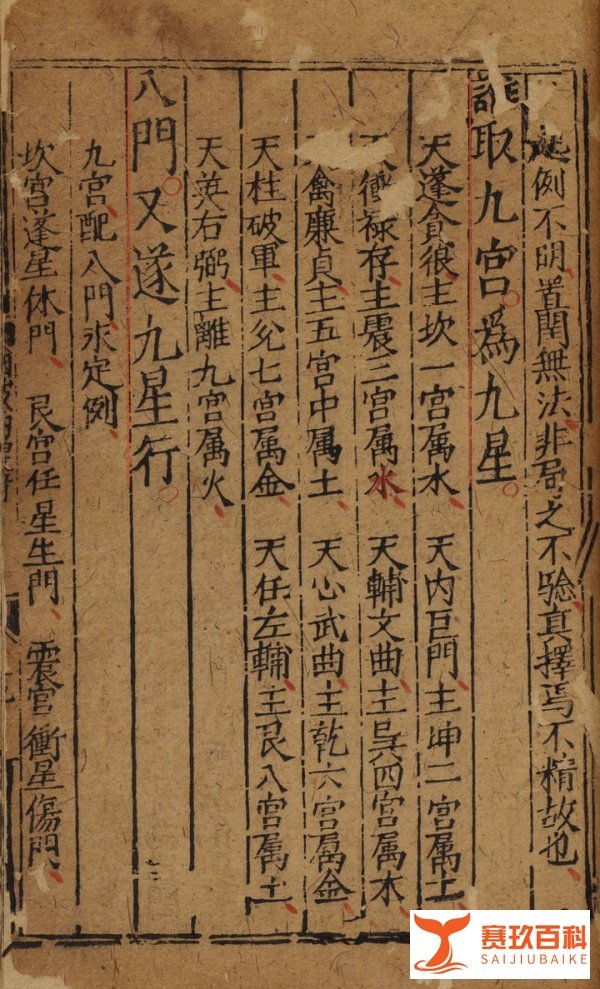 起例不明置閏無法非局之不驗真擇焉不精故也
認取九宮為九星
天蓬貪狼主坎一宮属水 天内巨門主坤二宮属土
衝祿存主震三宮属水 天輔文曲主巽四宮属木
禽廉貞主五宮中属土 天心武曲主乾六宮属金
天柱破軍主兌七宮属金 天任左輔主艮八宮属土
天英右弼主離九宮属火
八門又遂九星行
九宮配八門永定例
坎宮蓬星休門 艮宮任星生門 震宮衝星傷門
赛玖百科
SAIJIUBAIKE